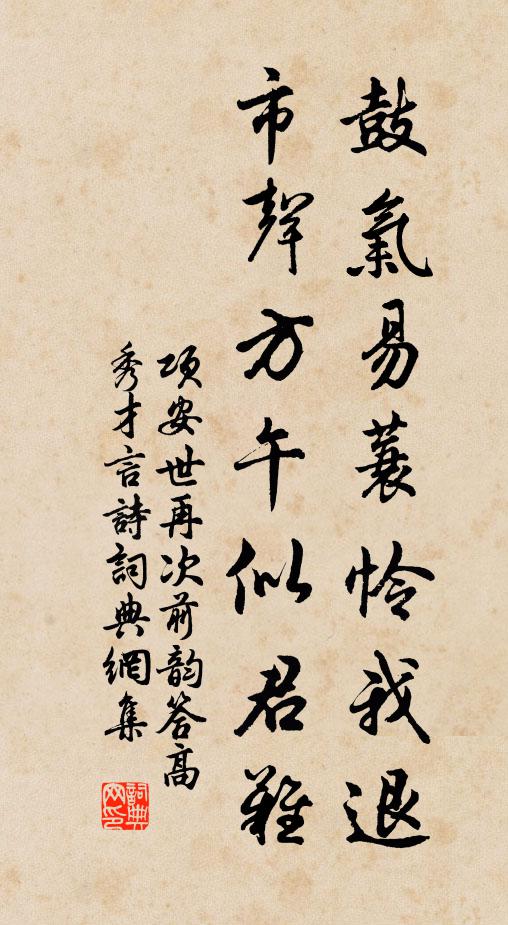 鼓氣易蓑怜我退
市聲方午似君難
項安世再次前韵答高
秀才言詩詞典網集
詞典网印